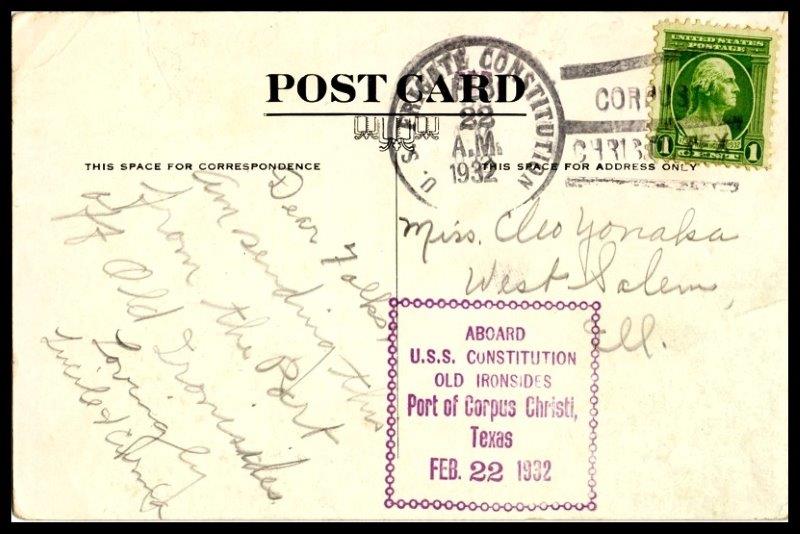 POST CARD
THIS SPACE FOR CORRESPONDENCE
THIS SPACE FOR ADDRESS ONLY
U.S. FRIGATE CONSTITUTION
22
A.M.
1932
CORPUS
CHRISTI TEX
UNITED STATES
POSTAGE
1 CENT 1
Dear Folks,
Am sending this
from the Port
off Old Ironsides.
Lovingly
Lucile &
Miss. Cleo Yonaka
West Salem,
Ill.
ABOARD
U.S.S. CONSTITUTION
OLD IRONSIDES
Port of Corpus Christi,
Texas
FEB. 22 1932